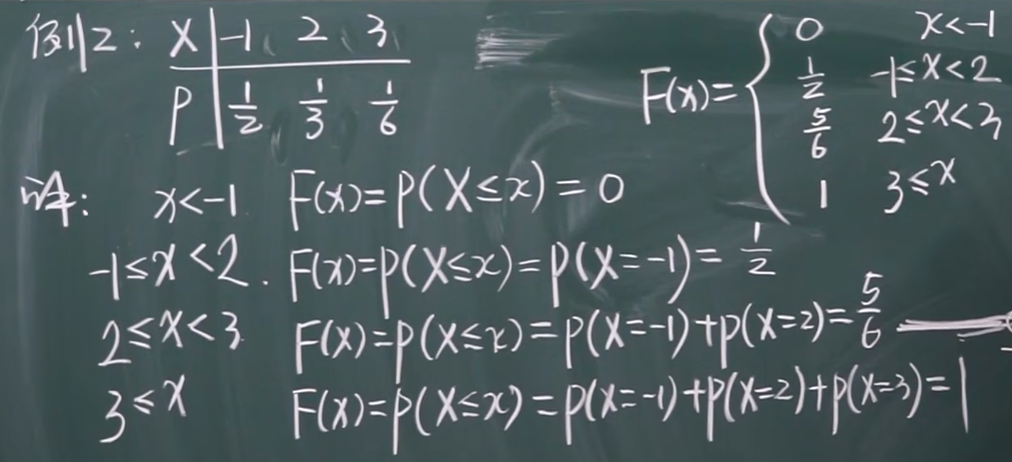 例2: X -1 2 3
P 1/2 1/3 1/6
F(x)= { 0 x<-1
1/2 -1≤x<2
5/6 2≤x<3
1 3≤x
解: x<-1 F(x)=P(X≤x)=0
-1≤x<2. F(x)=P(X≤x)=P(X=-1)=1/2
2≤x<3 F(x)=P(X≤x)=P(X=-1)+P(X=2)=5/6
3≤x F(x)=P(X≤x)=P(X=-1)+P(X=2)+P(X=3)=1